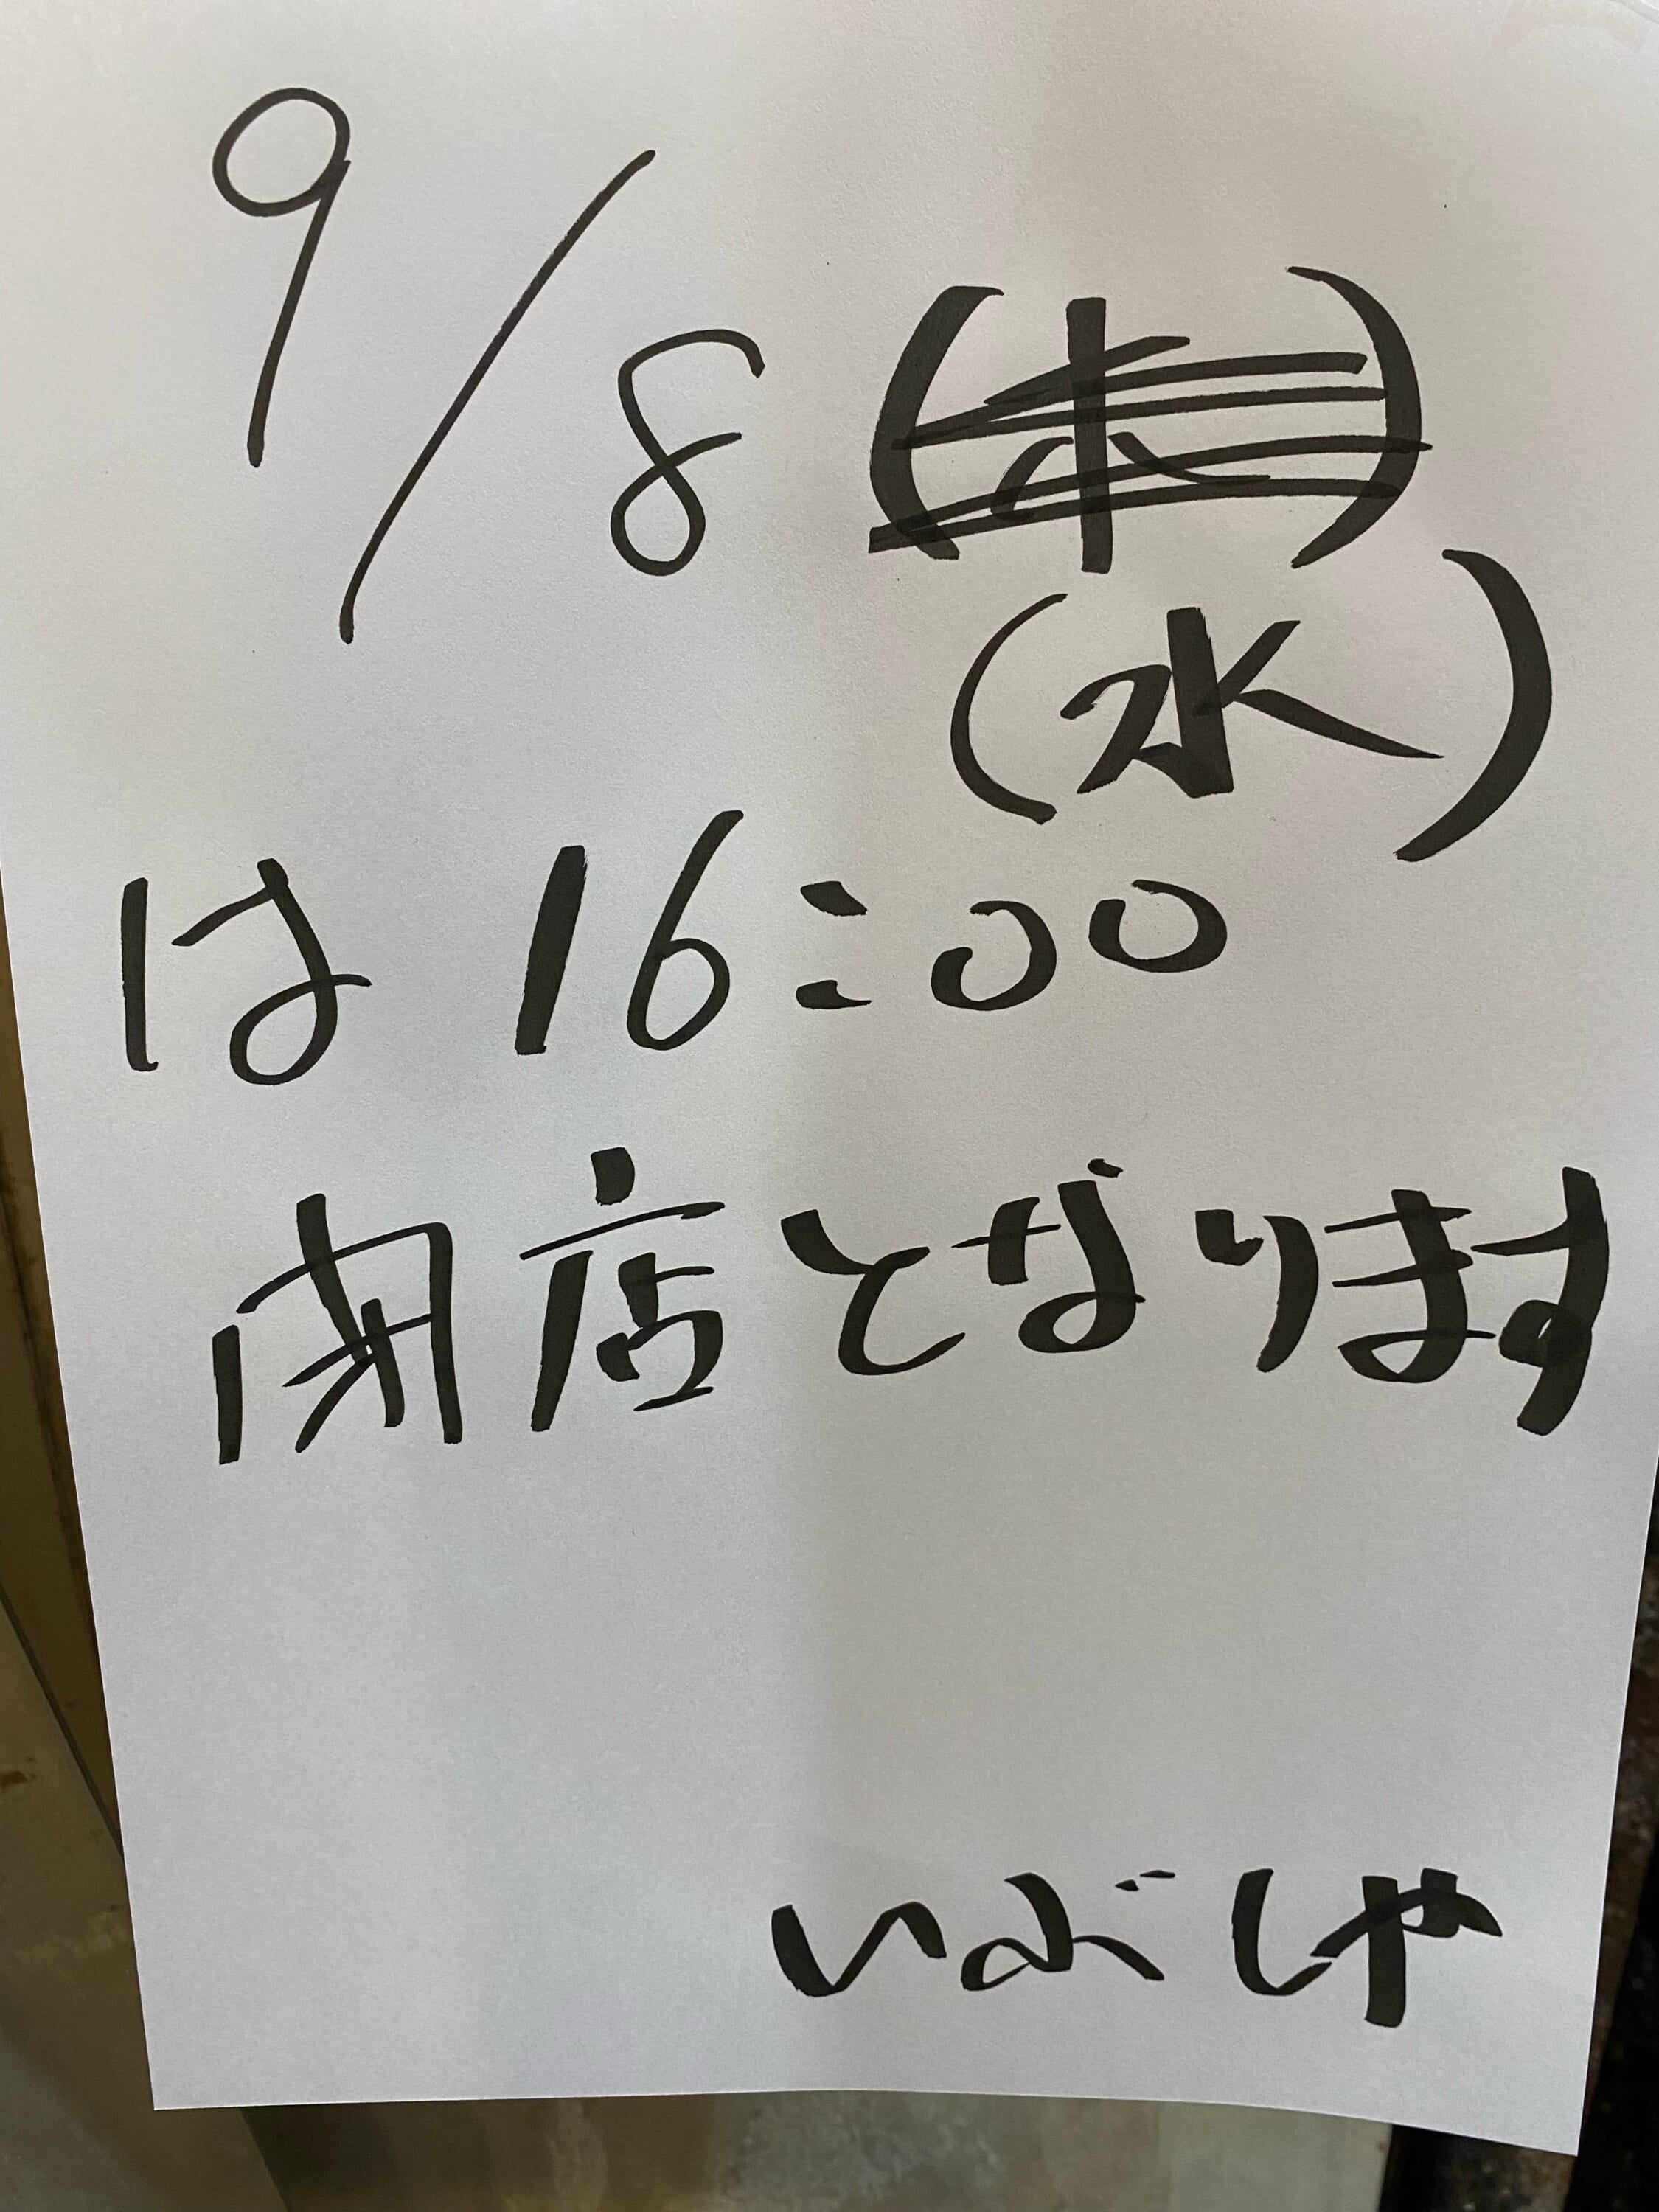 9/8(木)
(水)
は16:00
閉店となります
いぶしや